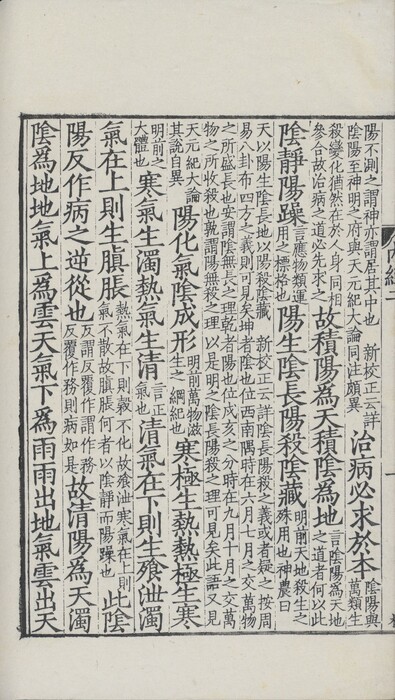 陽不測之謂神亦謂居其中也　新校正云詳
陰陽至神明之府與天元紀大論同注頗異
治病必求於本
陰陽與
萬類生
殺變化猶然在於人身同相
參合故治病之道必先求之
故積陽爲天積陰爲地
言陰陽爲天地
之道者何以此
陰靜陽躁
言應物類運
用之標格也
陽生陰長陽殺陰藏
明前天地殺生之
殊用也神農曰
天以陽生陰長地以陽殺陰藏　新校正云詳陰長陽殺之義或者疑之按周
易八卦布四方之義則可見矣坤者陰也位西南隅時在六月七月之交萬物
之所盛長也安謂陰無長之理乾者陽也位戌亥之分時在九月十月之交萬
物之所收殺也孰謂陽無殺之理以是明之陰長陽殺之理可見矣此語又見
天元紀大論
其說自異
陽化氣陰成形
明前萬物滋
生之綱紀也
寒極生熱熱極生寒
明前之
大體也
寒氣生濁熱氣生清
言正
氣也
清氣在下則生飱泄濁
氣在上則生䐜脹
熱氣在下則穀不化故飱泄寒氣在上則
氣不散故䐜脹何者以陰靜而陽躁也
此陰
陽反作病之逆從也
反謂反覆作謂作務
反覆作務則病如是
故清陽爲天濁
陰爲地地氣上爲雲天氣下爲雨雨出地氣雲出天